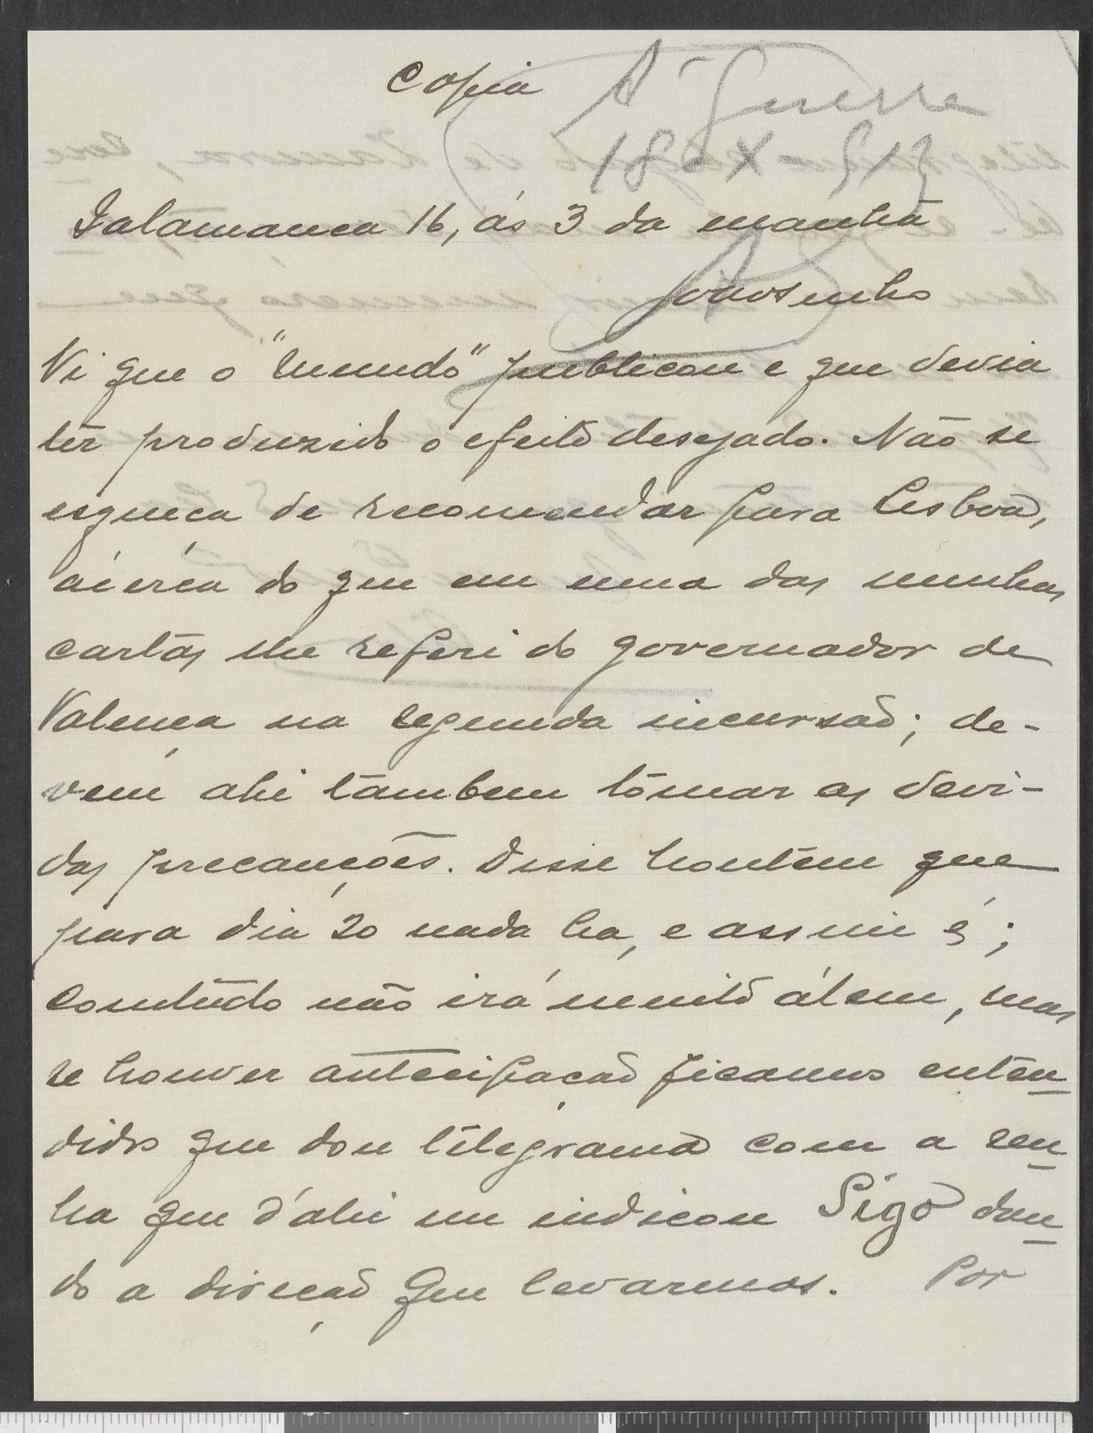 Copia
Á Guerra
18-X-913
Salamanca 16, ás 3 da manhã
Joãosinho
Vi que o "Mundo" publicou e que devia
têr produzido o efeito desejado. Não se
esqueça de recomendar para Lisboa,
ácêrca do que em uma das minhas
cartas me referi do governador de
Valença na segunda incursão; de-
vem ahi tambem tômar as devi-
das precauções. Disse hontem que
para dia 20 nada ha, e assim é;
comtudo não irá muito álem, mas
se houver antecipação ficamos enten-
didos que dou télegrama com a sen-
ha que d'ahi me indicou Sigo dan-
do a direcção que levarmos. Por